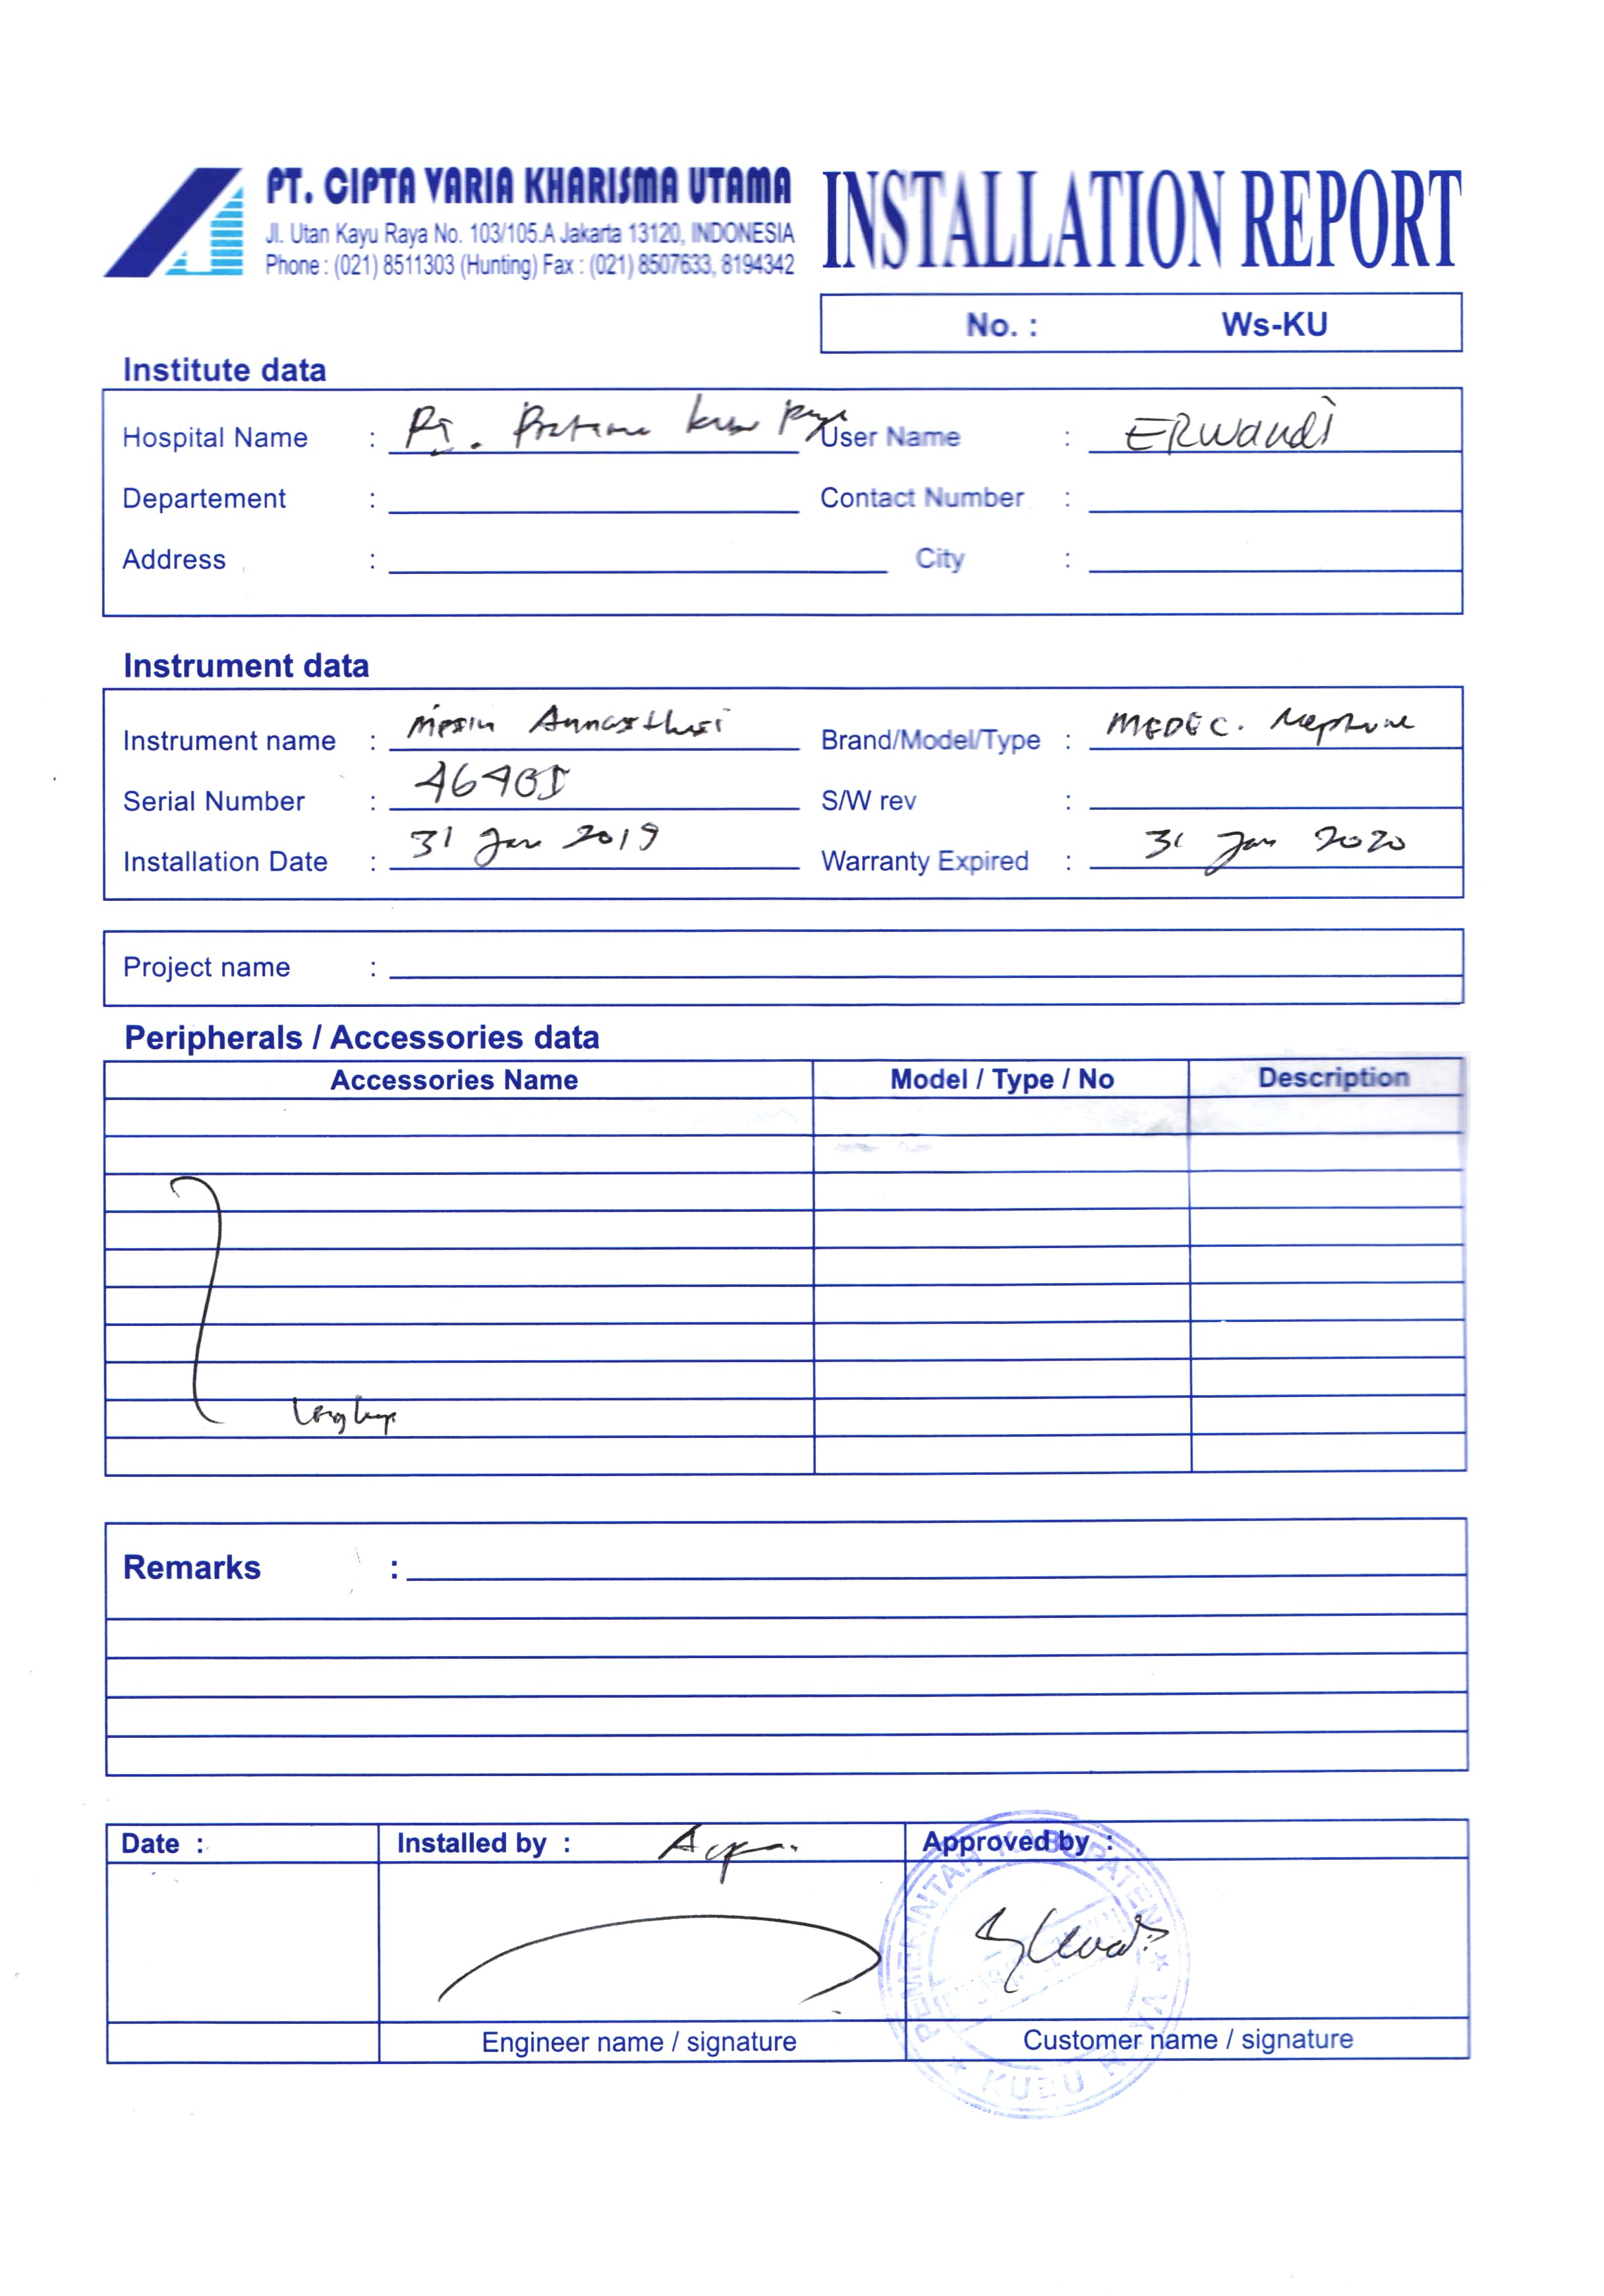 PT. CIPTA VARIA KHARISMA UTAMA
Jl. Utan Kayu Raya No. 103/105.A Jakarta 13120, INDONESIA
Phone : (021) 8511303 (Hunting) Fax : (021) 8507633, 8194342
INSTALLATION REPORT
No. : Ws-KU
Institute data
Hospital Name : RS. Pratama User Name : ERWandi
Departement : Contact Number :
Address : City :
Instrument data
Instrument name : Mesin Brand/Model/Type : MEDEC. Neptune
Serial Number : S/W rev :
Installation Date : 31 Jan 2019 Warranty Expired : 31 Jan 2020
Project name :
Peripherals / Accessories data
Accessories Name Model / Type / No Description
Lengkap
Remarks :
Date : Installed by : Approved by :
PEMERINTAH KABUPATEN
KUBU RAYA
Engineer name / signature Customer name / signature